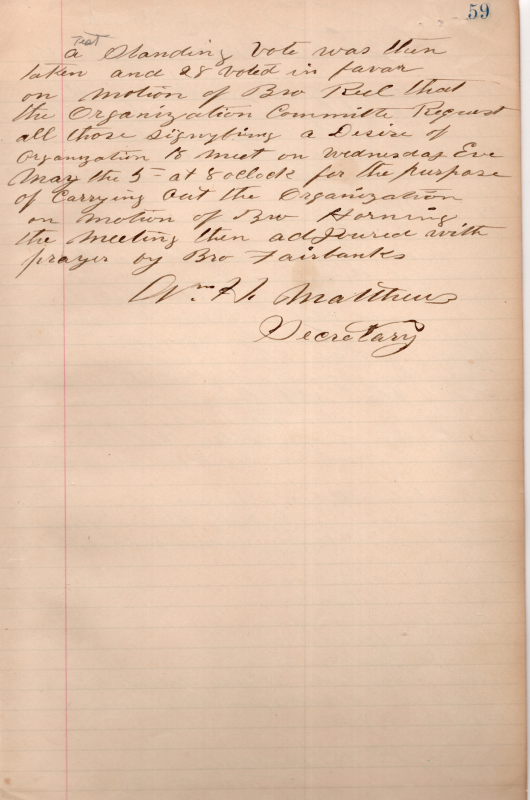 59
Test
a Standing Vote was then
taken and 28 voted in favar
on motion of Bro Keel that
the Organization Committe Request
all those Signybing a Desire of
Organization to meet on Wednesday Eve
May the 5 = at 8 oclock for the purpose
of Carrying out the Organization
on motion of Bro Horning
the meeting then adjoured with
prayer by Bro Fairbanks
Wm H. Matthews
Secretary